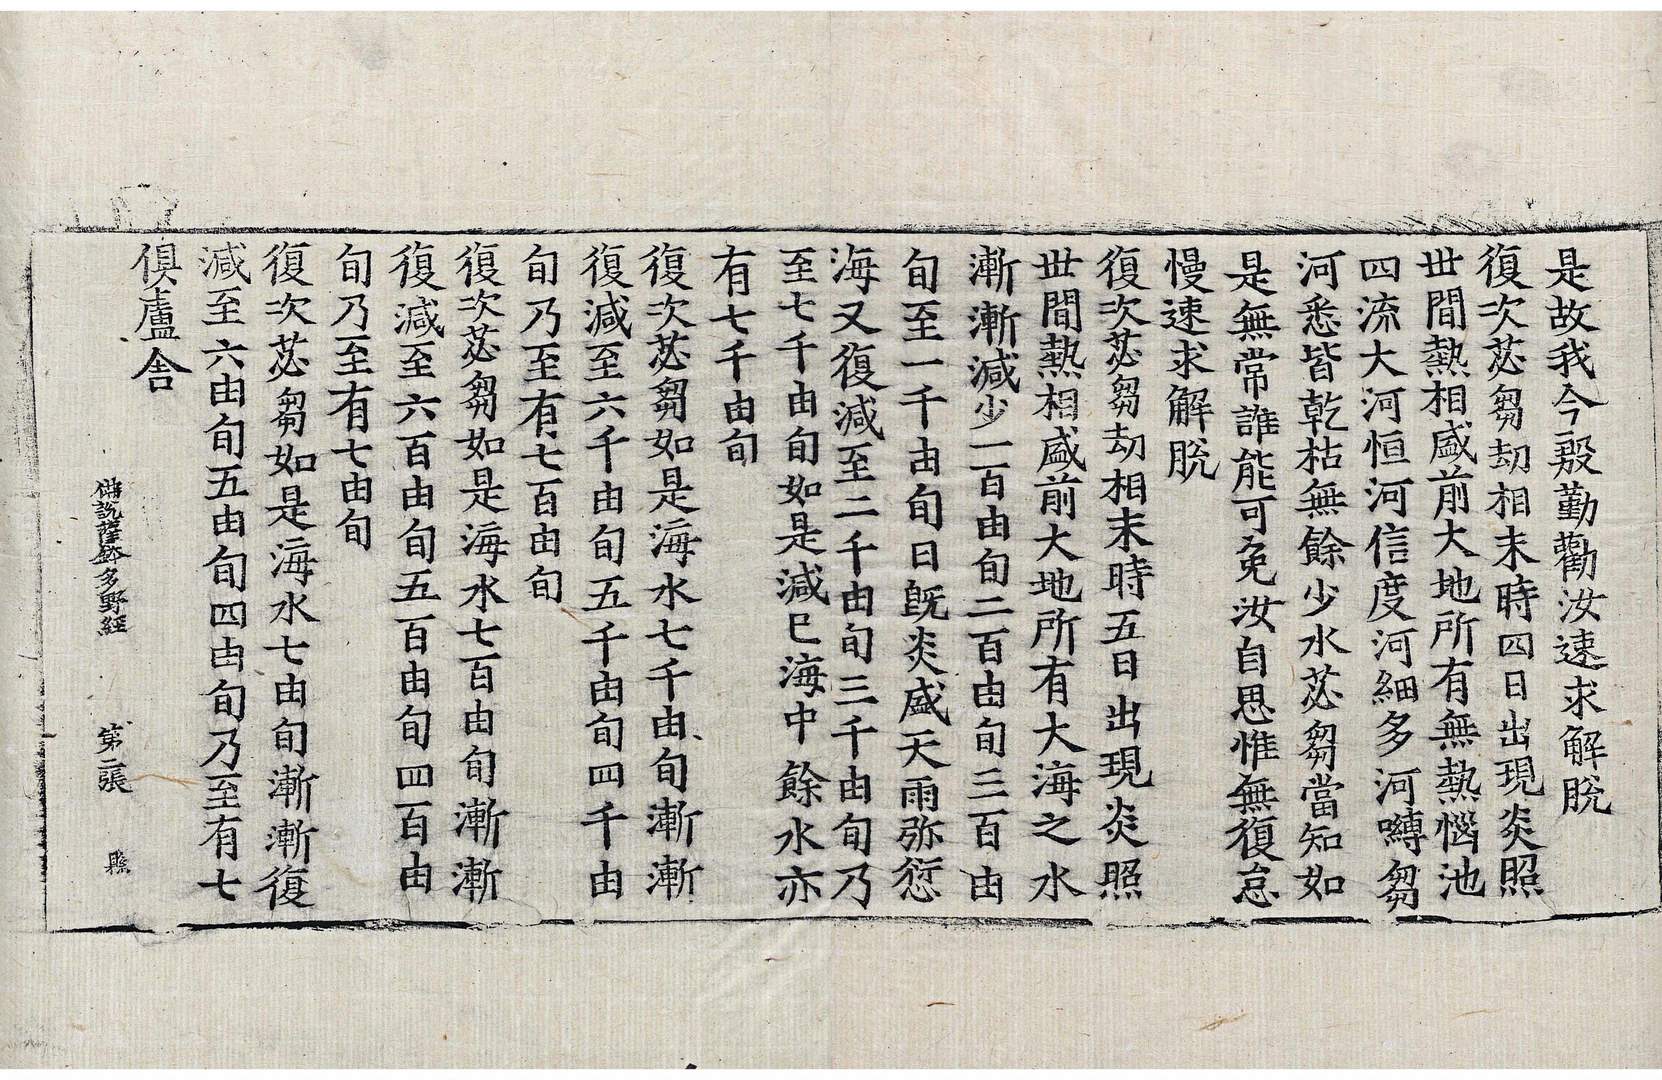 是故我今殷勤勸汝速求解脫
復次苾芻劫相末時四日出現炎照
丗間熱相盛前大地所有無熱惱池
四流大河恒河信度河細多河嚩芻
河悉皆乾枯無餘少水苾芻當知如
是無常誰能可免汝自思惟無復怠
慢速求解脫
復次苾芻劫相末時五日出現炎照
丗間熱相盛前大地所有大海之水
漸漸減少一百由旬二百由旬三百由
旬至一千由旬日既炎盛天雨弥愆
海又復減至二千由旬三千由旬乃
至七千由旬如是減已海中餘水亦
有七千由旬
復次苾芻如是海水七千由旬漸漸
復減至六千由旬五千由旬四千由
旬乃至有七百由旬
復次苾芻如是海水七百由旬漸漸
復減至六百由旬五百由旬四百由
旬乃至有七由旬
復次苾芻如是海水七由旬漸漸復
減至六由旬五由旬四由旬乃至有七
俱盧舍
佛說薩鉢多野經 第二張